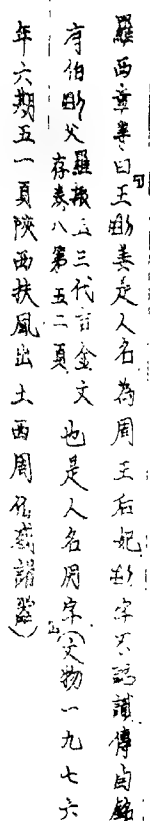 羅西章等曰王㓝姜是人名為周王后妃㓝字不識讀傳卣銘
有伯㓝父羅振玉三代吉金文存卷八第五二頁也是人名用字(文物一九七六
年六期五一頁陝西扶風出土西周伯㦰諸器)